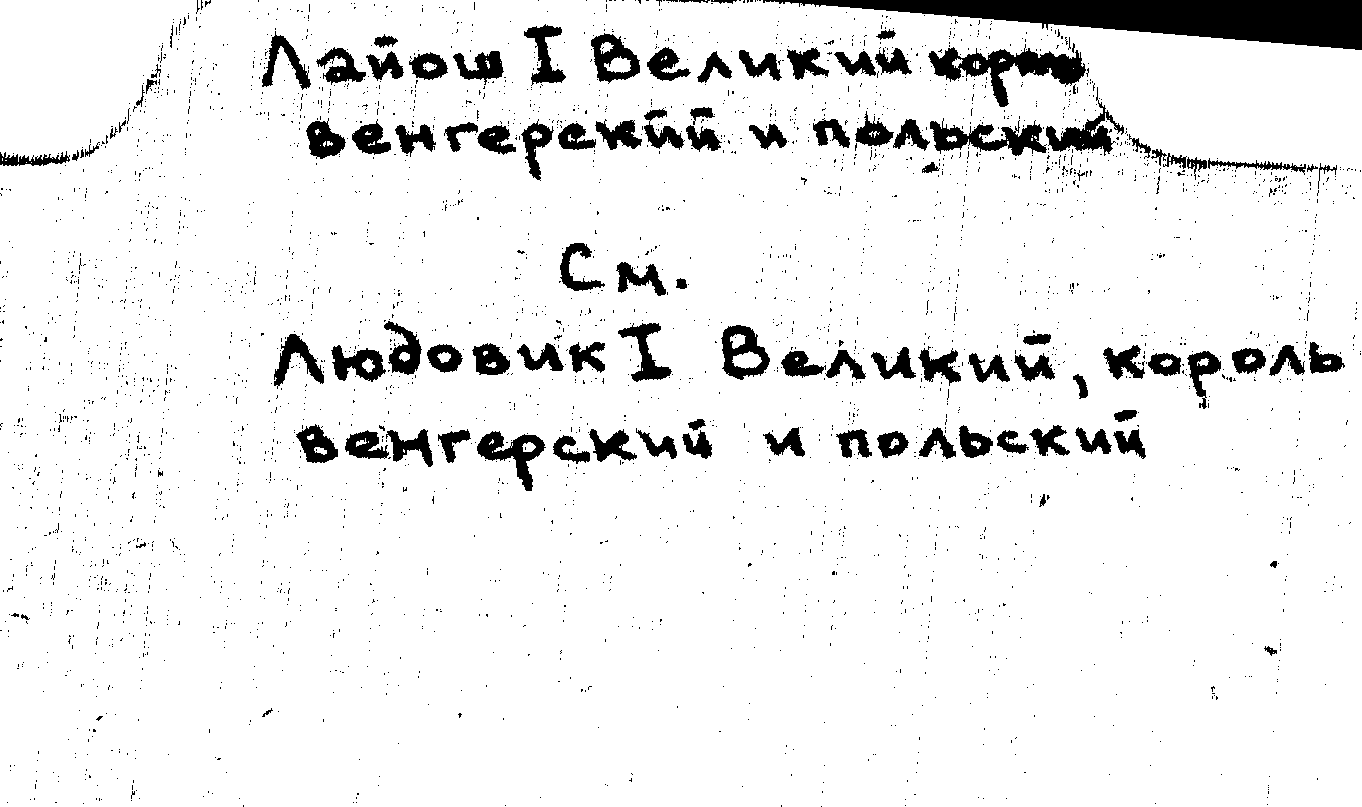 Лайош I Великий король
венгерский и польский
См.
Людовик I Великий, король
венгерский и польский